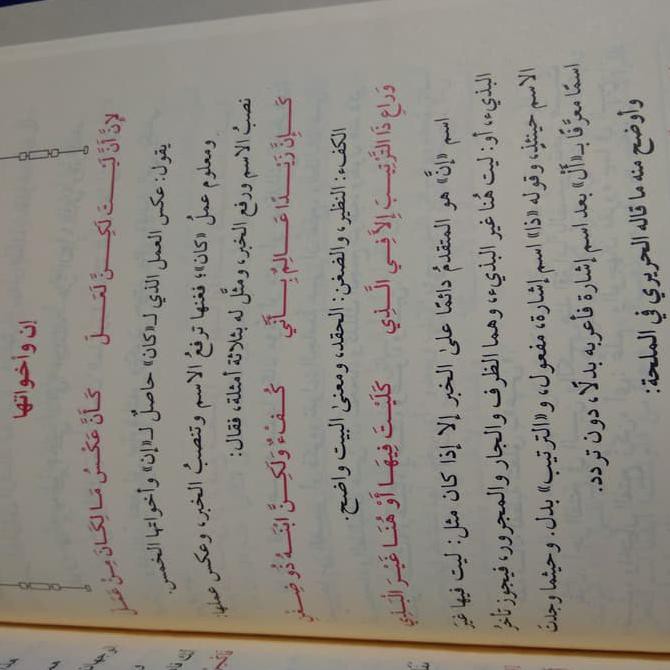 إن وأخواتها
لِإِنَّ أَنَّ لَيْتَ لَكِنَّ لَعَلْ كَأَنَّ عَكْسُ مَا لِكَانَ مِنْ عَمَلْ
يقول: عكس العمل الذي لـ«كان» حاصلٌ لـ«إن» وأخواتها الخمس.
ومعلوم عملُ «كان»؛ فغنها ترفعُ الاسم وتنصبُ الخبر، وعكس عملها:
نصبُ الاسم ورفع الخبر، ومثَّل له بثلاثة أمثلة، فقال:
كَإِنَّ زَيْدًا عَالِمٌ بِأَنِّي كُفْءٌ وَلَكِنَّ ابْنَهُ ذُو ضِغْنِ
الكفء: النظير، والضغن: الحقد، ومعنى البيت واضح.
وَرَاعِ ذَا التَّرْتِيبَ إِلَّا فِي الَّذِي كَلَيْتَ فِيهَا أَوْ هُنَا غَيْرَ الْبَذِي
اسم «إنَّ» هو المتقدمُ دائمًا على الخبر إلا إذا كان مثل: ليت فيها غيرَ
البذيء، أو: ليت هُنا غير البذيء، وهما الظرف والجار والمجرور، فيجوز تأخرُ
الاسم حينئذٍ، وقوله «ذا» اسم إشارة، مفعول، و«الترتيب» بدل. وحيثما وجدتَ
اسمًا معرَّفًا بـ«أَلْ» بعد اسم إشارة فأعربه بدلًا، دون تردد.
وأوضح منه ما قاله الحريري في الملحة: